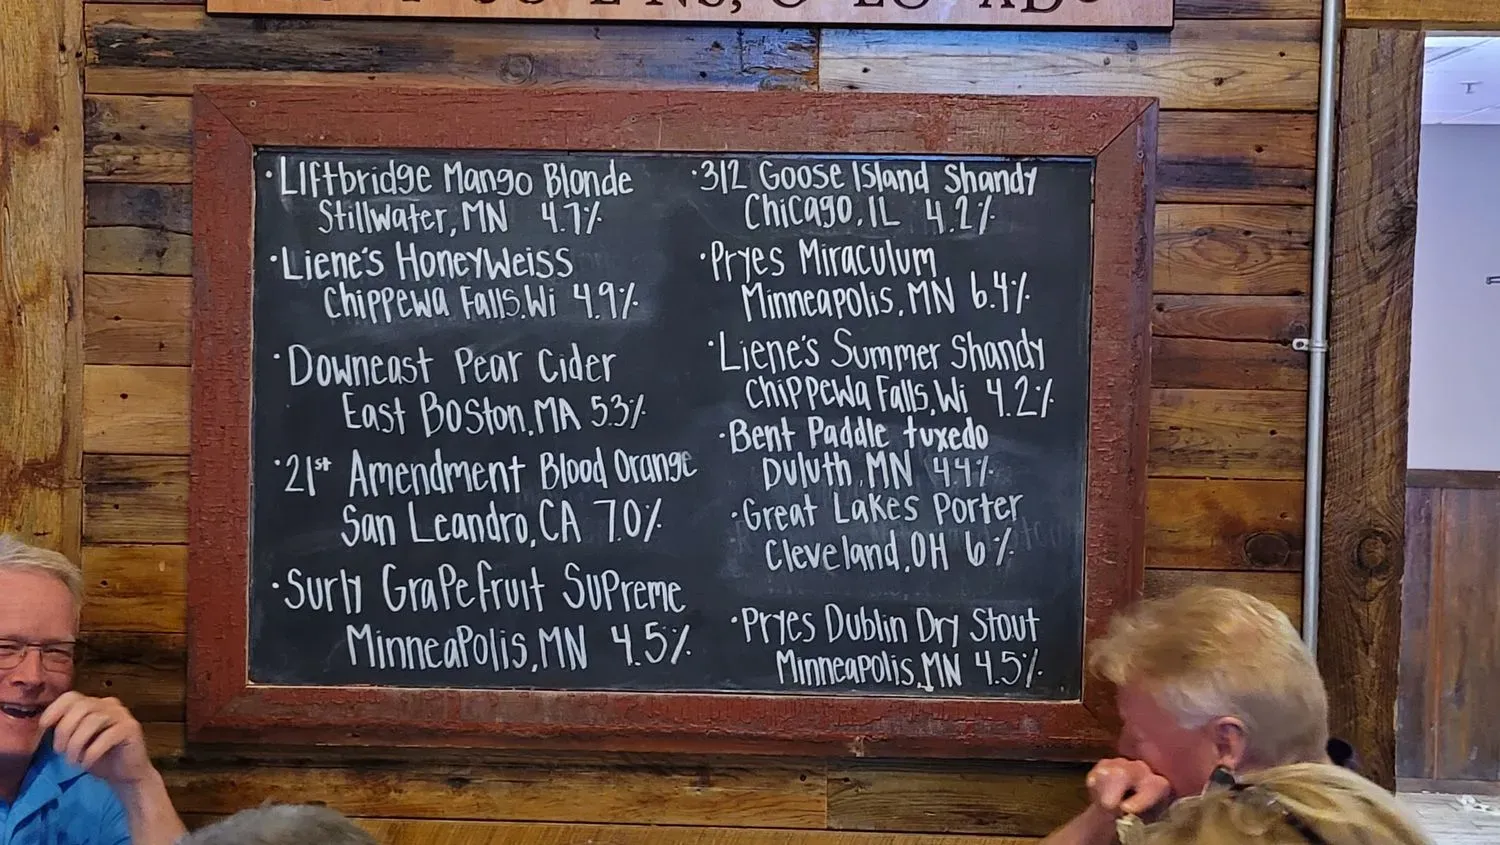 ·Liftbridge Mango Blonde
Stillwater, MN 4.7%
·Liene's HoneyWeiss
Chippewa Falls, Wi 4.9%
·Downeast Pear Cider
East Boston, MA 5.3%
·21st Amendment Blood Orange
San Leandro, CA 7.0%
·Surly Grapefruit Supreme
Minneapolis, MN 4.5%
·312 Goose Island Shandy
Chicago, IL 4.2%
·Pryes Miraculum
Minneapolis, MN 6.4%
·Liene's Summer Shandy
Chippewa Falls, Wi 4.2%
·Bent Paddle tuxedo
Duluth, MN 4.4%
·Great Lakes Porter
Cleveland, OH 6%
·Pryes Dublin Dry Stout
Minneapolis, MN 4.5%